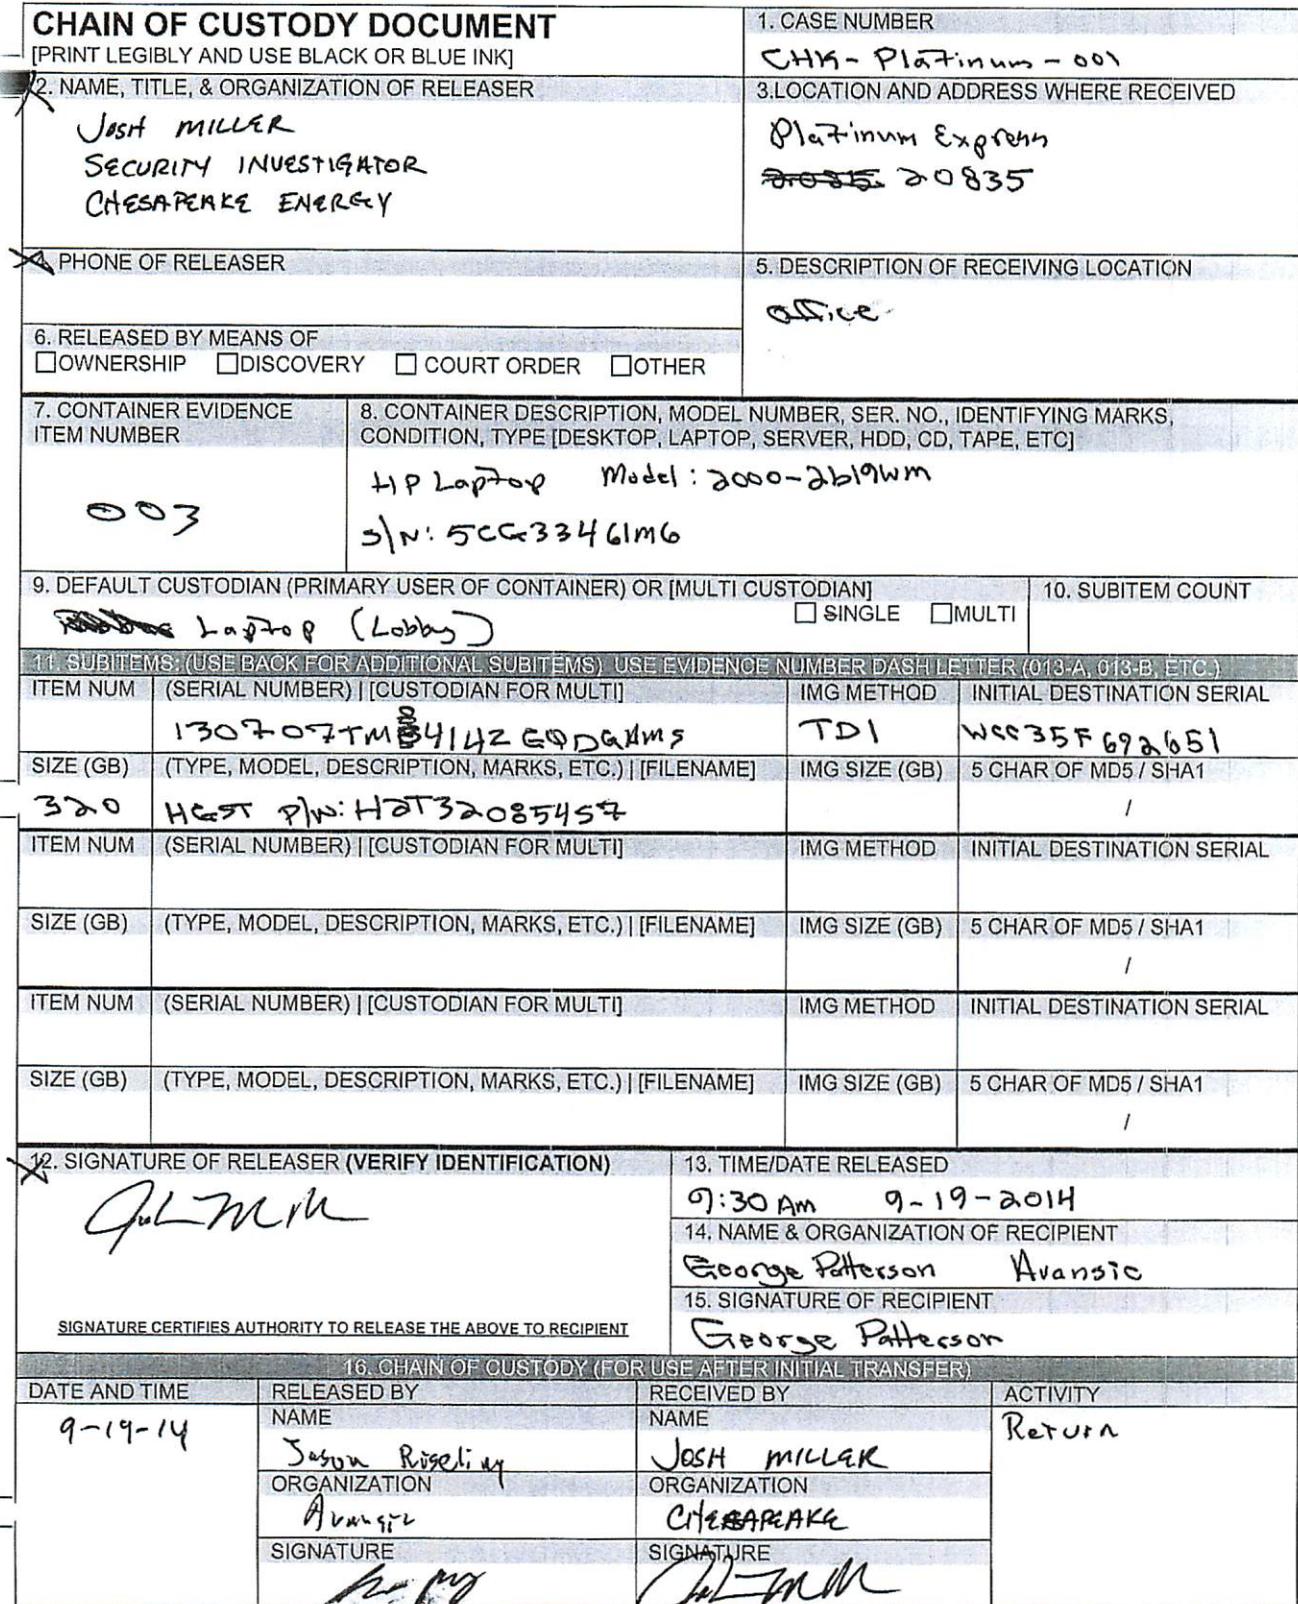 CHAIN OF CUSTODY DOCUMENT
[PRINT LEGIBLY AND USE BLACK OR BLUE INK]
1. CASE NUMBER
CHK-Platinum-001
2. NAME, TITLE, & ORGANIZATION OF RELEASER
JOSH MILLER
SECURITY INVESTIGATOR
CHESAPEAKE ENERGY
3.LOCATION AND ADDRESS WHERE RECEIVED
Platinum Express
20835
4. PHONE OF RELEASER
5. DESCRIPTION OF RECEIVING LOCATION
office
6. RELEASED BY MEANS OF
☐OWNERSHIP ☐DISCOVERY ☐ COURT ORDER ☐OTHER
7. CONTAINER EVIDENCE
ITEM NUMBER
003
8. CONTAINER DESCRIPTION, MODEL NUMBER, SER. NO., IDENTIFYING MARKS,
CONDITION, TYPE [DESKTOP, LAPTOP, SERVER, HDD, CD, TAPE, ETC]
HP Laptop Model: 2000-2b19wm
S/N: 5CG33461M6
9. DEFAULT CUSTODIAN (PRIMARY USER OF CONTAINER) OR [MULTI CUSTODIAN]
☐ SINGLE ☐MULTI
Laptop (Lobby)
10. SUBITEM COUNT
11. SUBITEMS: (USE BACK FOR ADDITIONAL SUBITEMS) USE EVIDENCE NUMBER DASH LETTER (013-A, 013-B, ETC.)
ITEM NUM (SERIAL NUMBER) | [CUSTODIAN FOR MULTI] IMG METHOD INITIAL DESTINATION SERIAL
TD1 WCC35F692651
SIZE (GB) (TYPE, MODEL, DESCRIPTION, MARKS, ETC.) | [FILENAME] IMG SIZE (GB) 5 CHAR OF MD5 / SHA1
320 HGST P/N: H2T320854S7 /
ITEM NUM (SERIAL NUMBER) | [CUSTODIAN FOR MULTI] IMG METHOD INITIAL DESTINATION SERIAL
SIZE (GB) (TYPE, MODEL, DESCRIPTION, MARKS, ETC.) | [FILENAME] IMG SIZE (GB) 5 CHAR OF MD5 / SHA1
/
ITEM NUM (SERIAL NUMBER) | [CUSTODIAN FOR MULTI] IMG METHOD INITIAL DESTINATION SERIAL
SIZE (GB) (TYPE, MODEL, DESCRIPTION, MARKS, ETC.) | [FILENAME] IMG SIZE (GB) 5 CHAR OF MD5 / SHA1
/
12. SIGNATURE OF RELEASER (VERIFY IDENTIFICATION)
SIGNATURE CERTIFIES AUTHORITY TO RELEASE THE ABOVE TO RECIPIENT
13. TIME/DATE RELEASED
9:30 Am 9-19-2014
14. NAME & ORGANIZATION OF RECIPIENT
George Patterson Avansic
15. SIGNATURE OF RECIPIENT
George Patterson
16. CHAIN OF CUSTODY (FOR USE AFTER INITIAL TRANSFER)
DATE AND TIME RELEASED BY RECEIVED BY ACTIVITY
9-19-14 NAME NAME Return
Jason JOSH MILLER
ORGANIZATION ORGANIZATION
Avansic CHESAPEAKE
SIGNATURE SIGNATURE